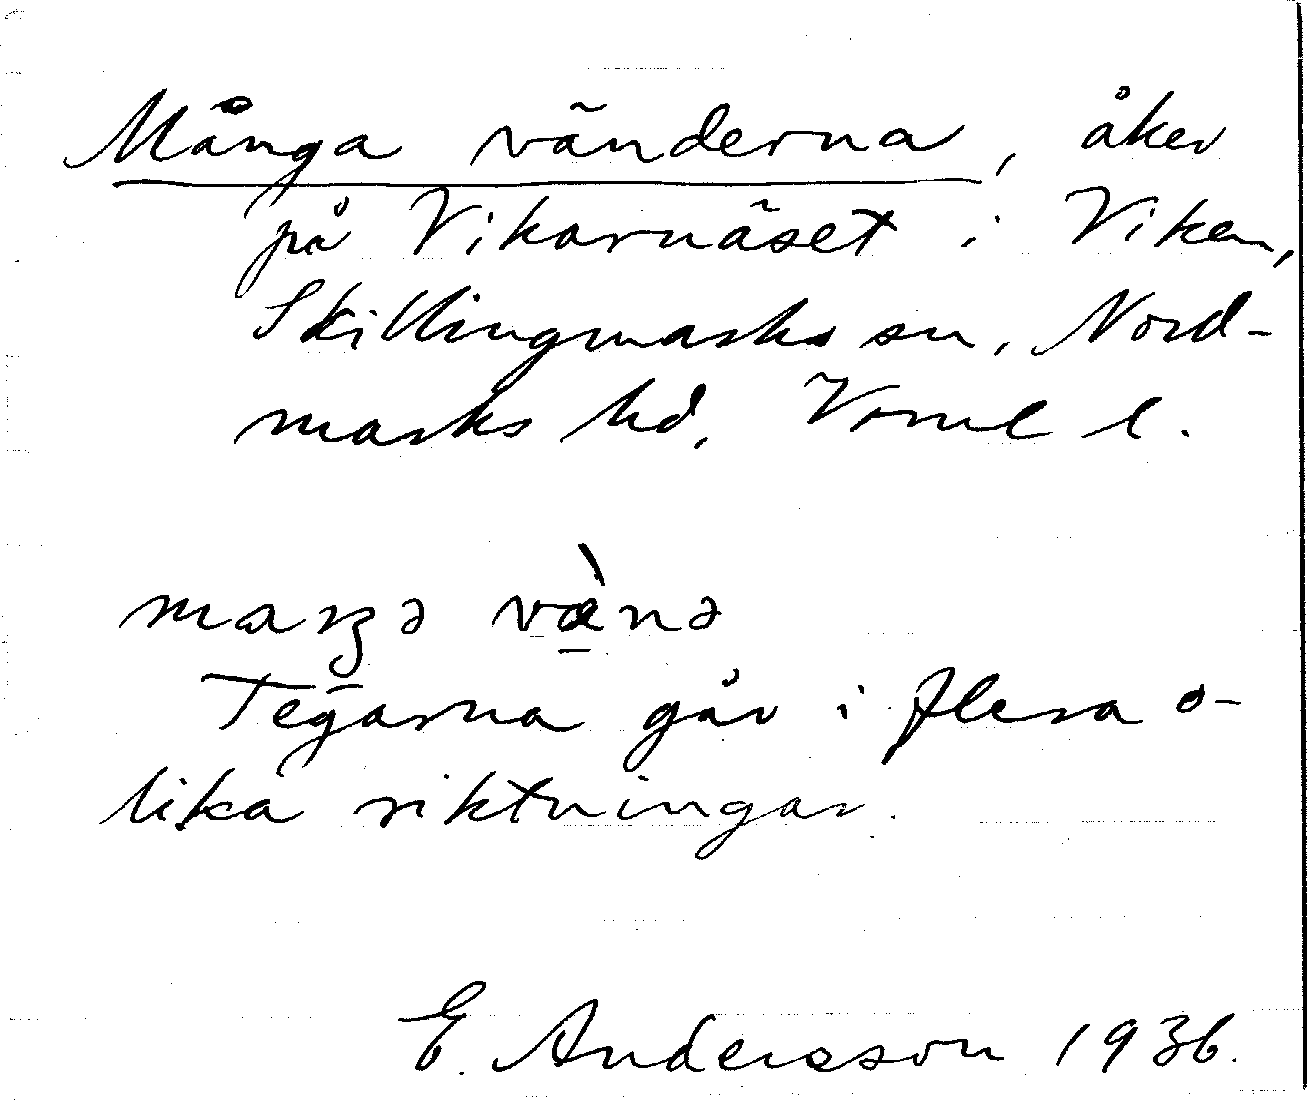 Många vänderna, åker
på Vikarnäset i Viken,
Skillingmarks sn, Nord-
marks hd, Vrml l.
maŋə væ̀nə
Tegarna går i flera o-
lika riktningar.
E. Andersson 1936.